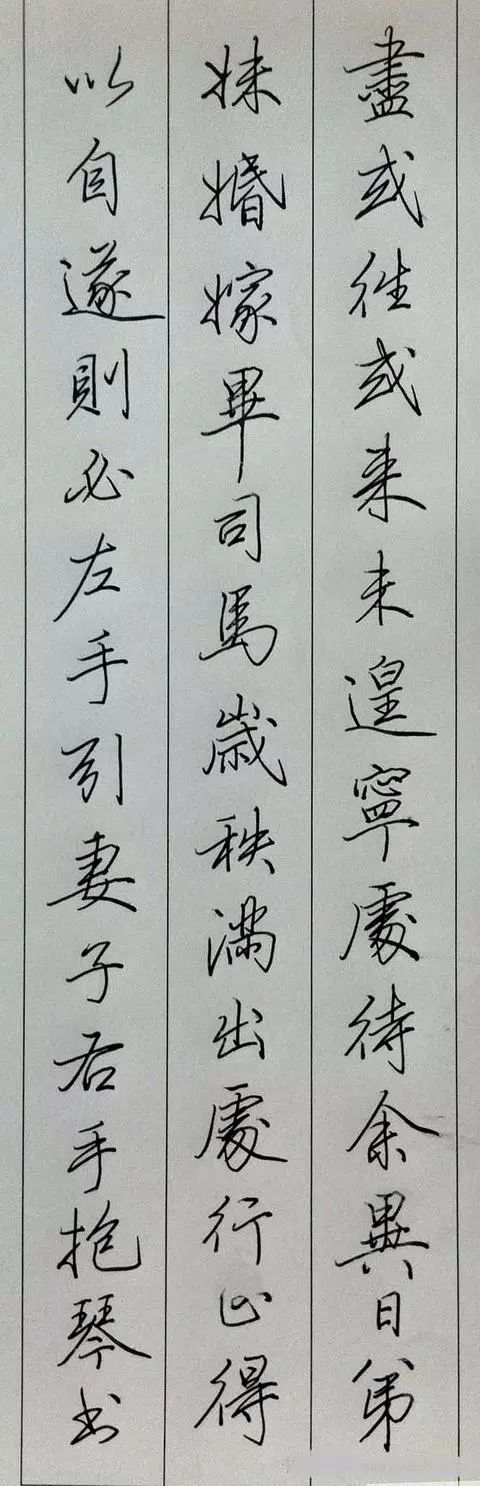 盡或往或来未遑寧處待余異日弟
妹婚嫁畢司馬歲秩滿出處行止得
以自遂則必左手引妻子右手抱琴书